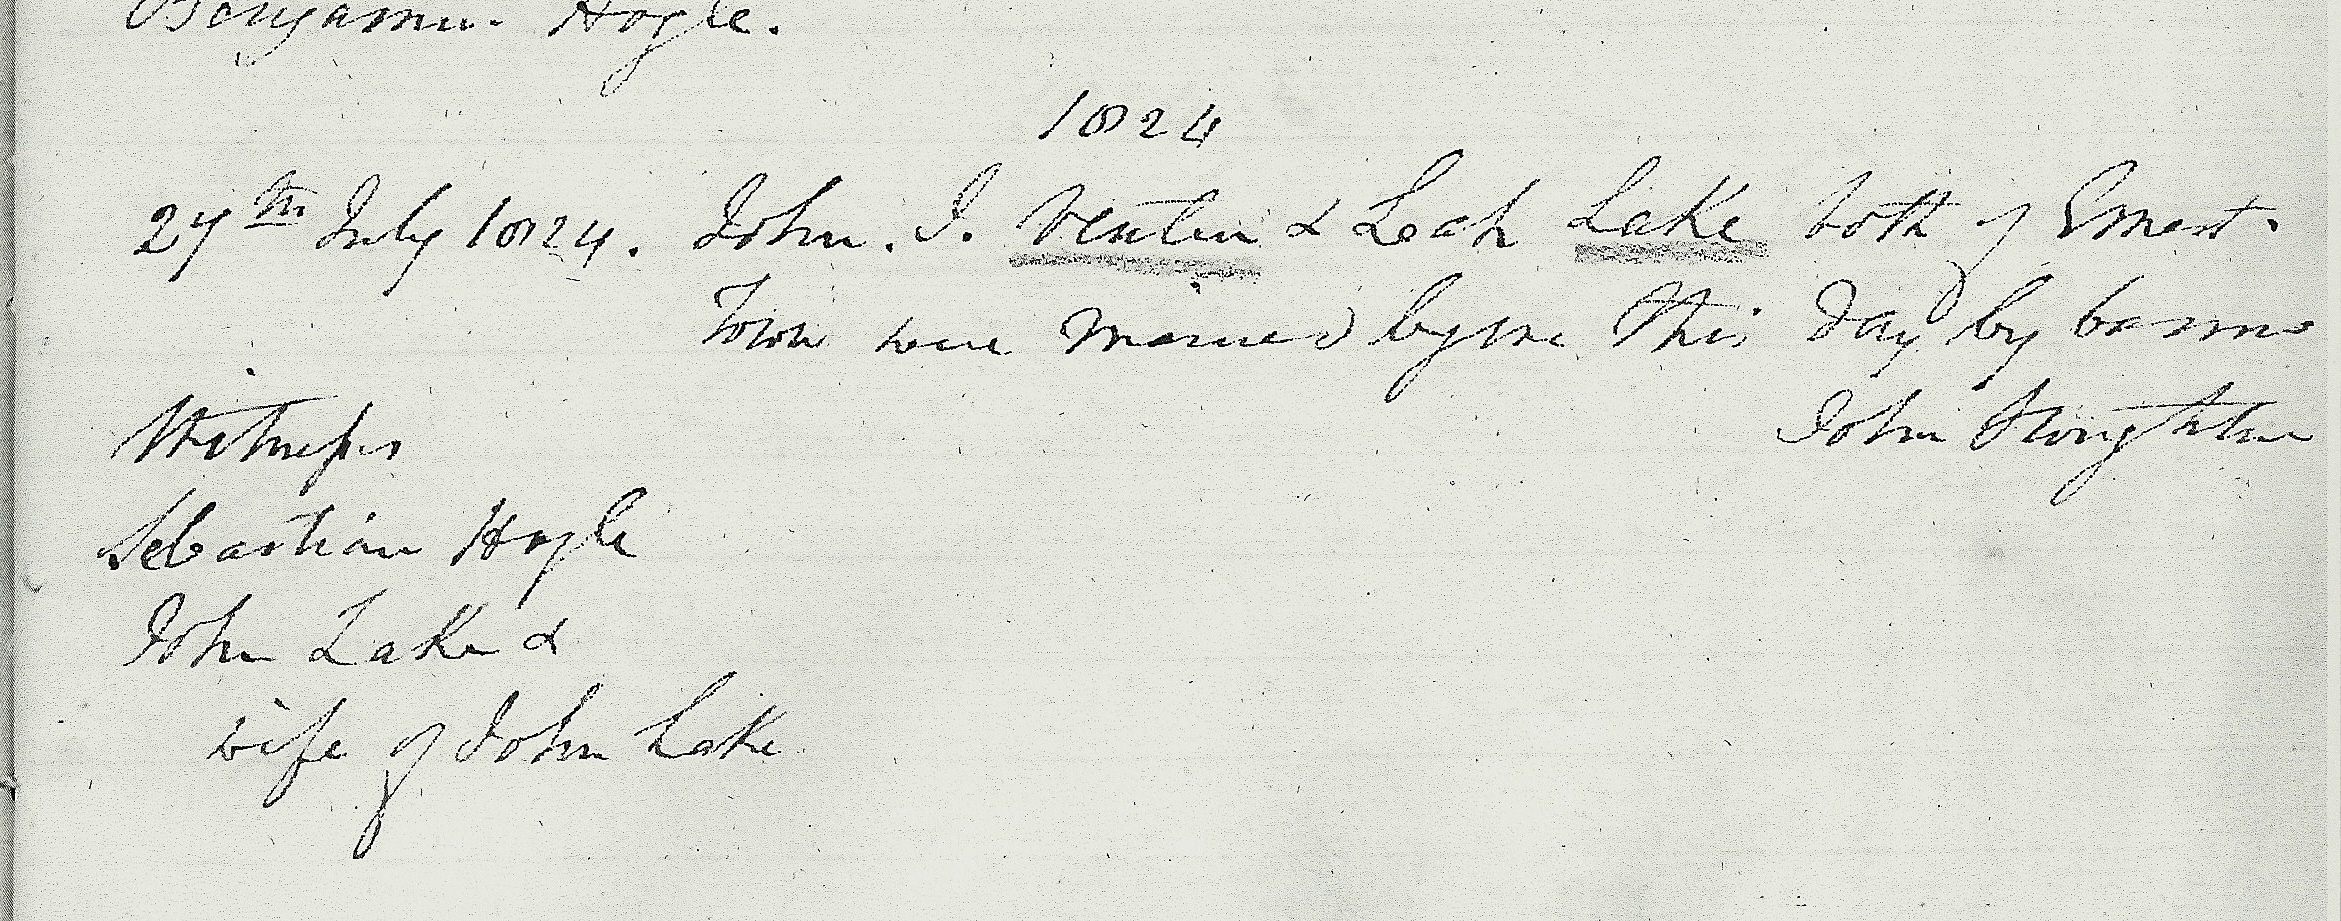 Benjamin Hogle.
1824
27th July 1824. John. J. Venlin & Leah Lake both of Ernest.
Town were married by me this day by banns
John Stoughton
Witnesses
Sebastian Hogle
John Lake &
wife of John Lake